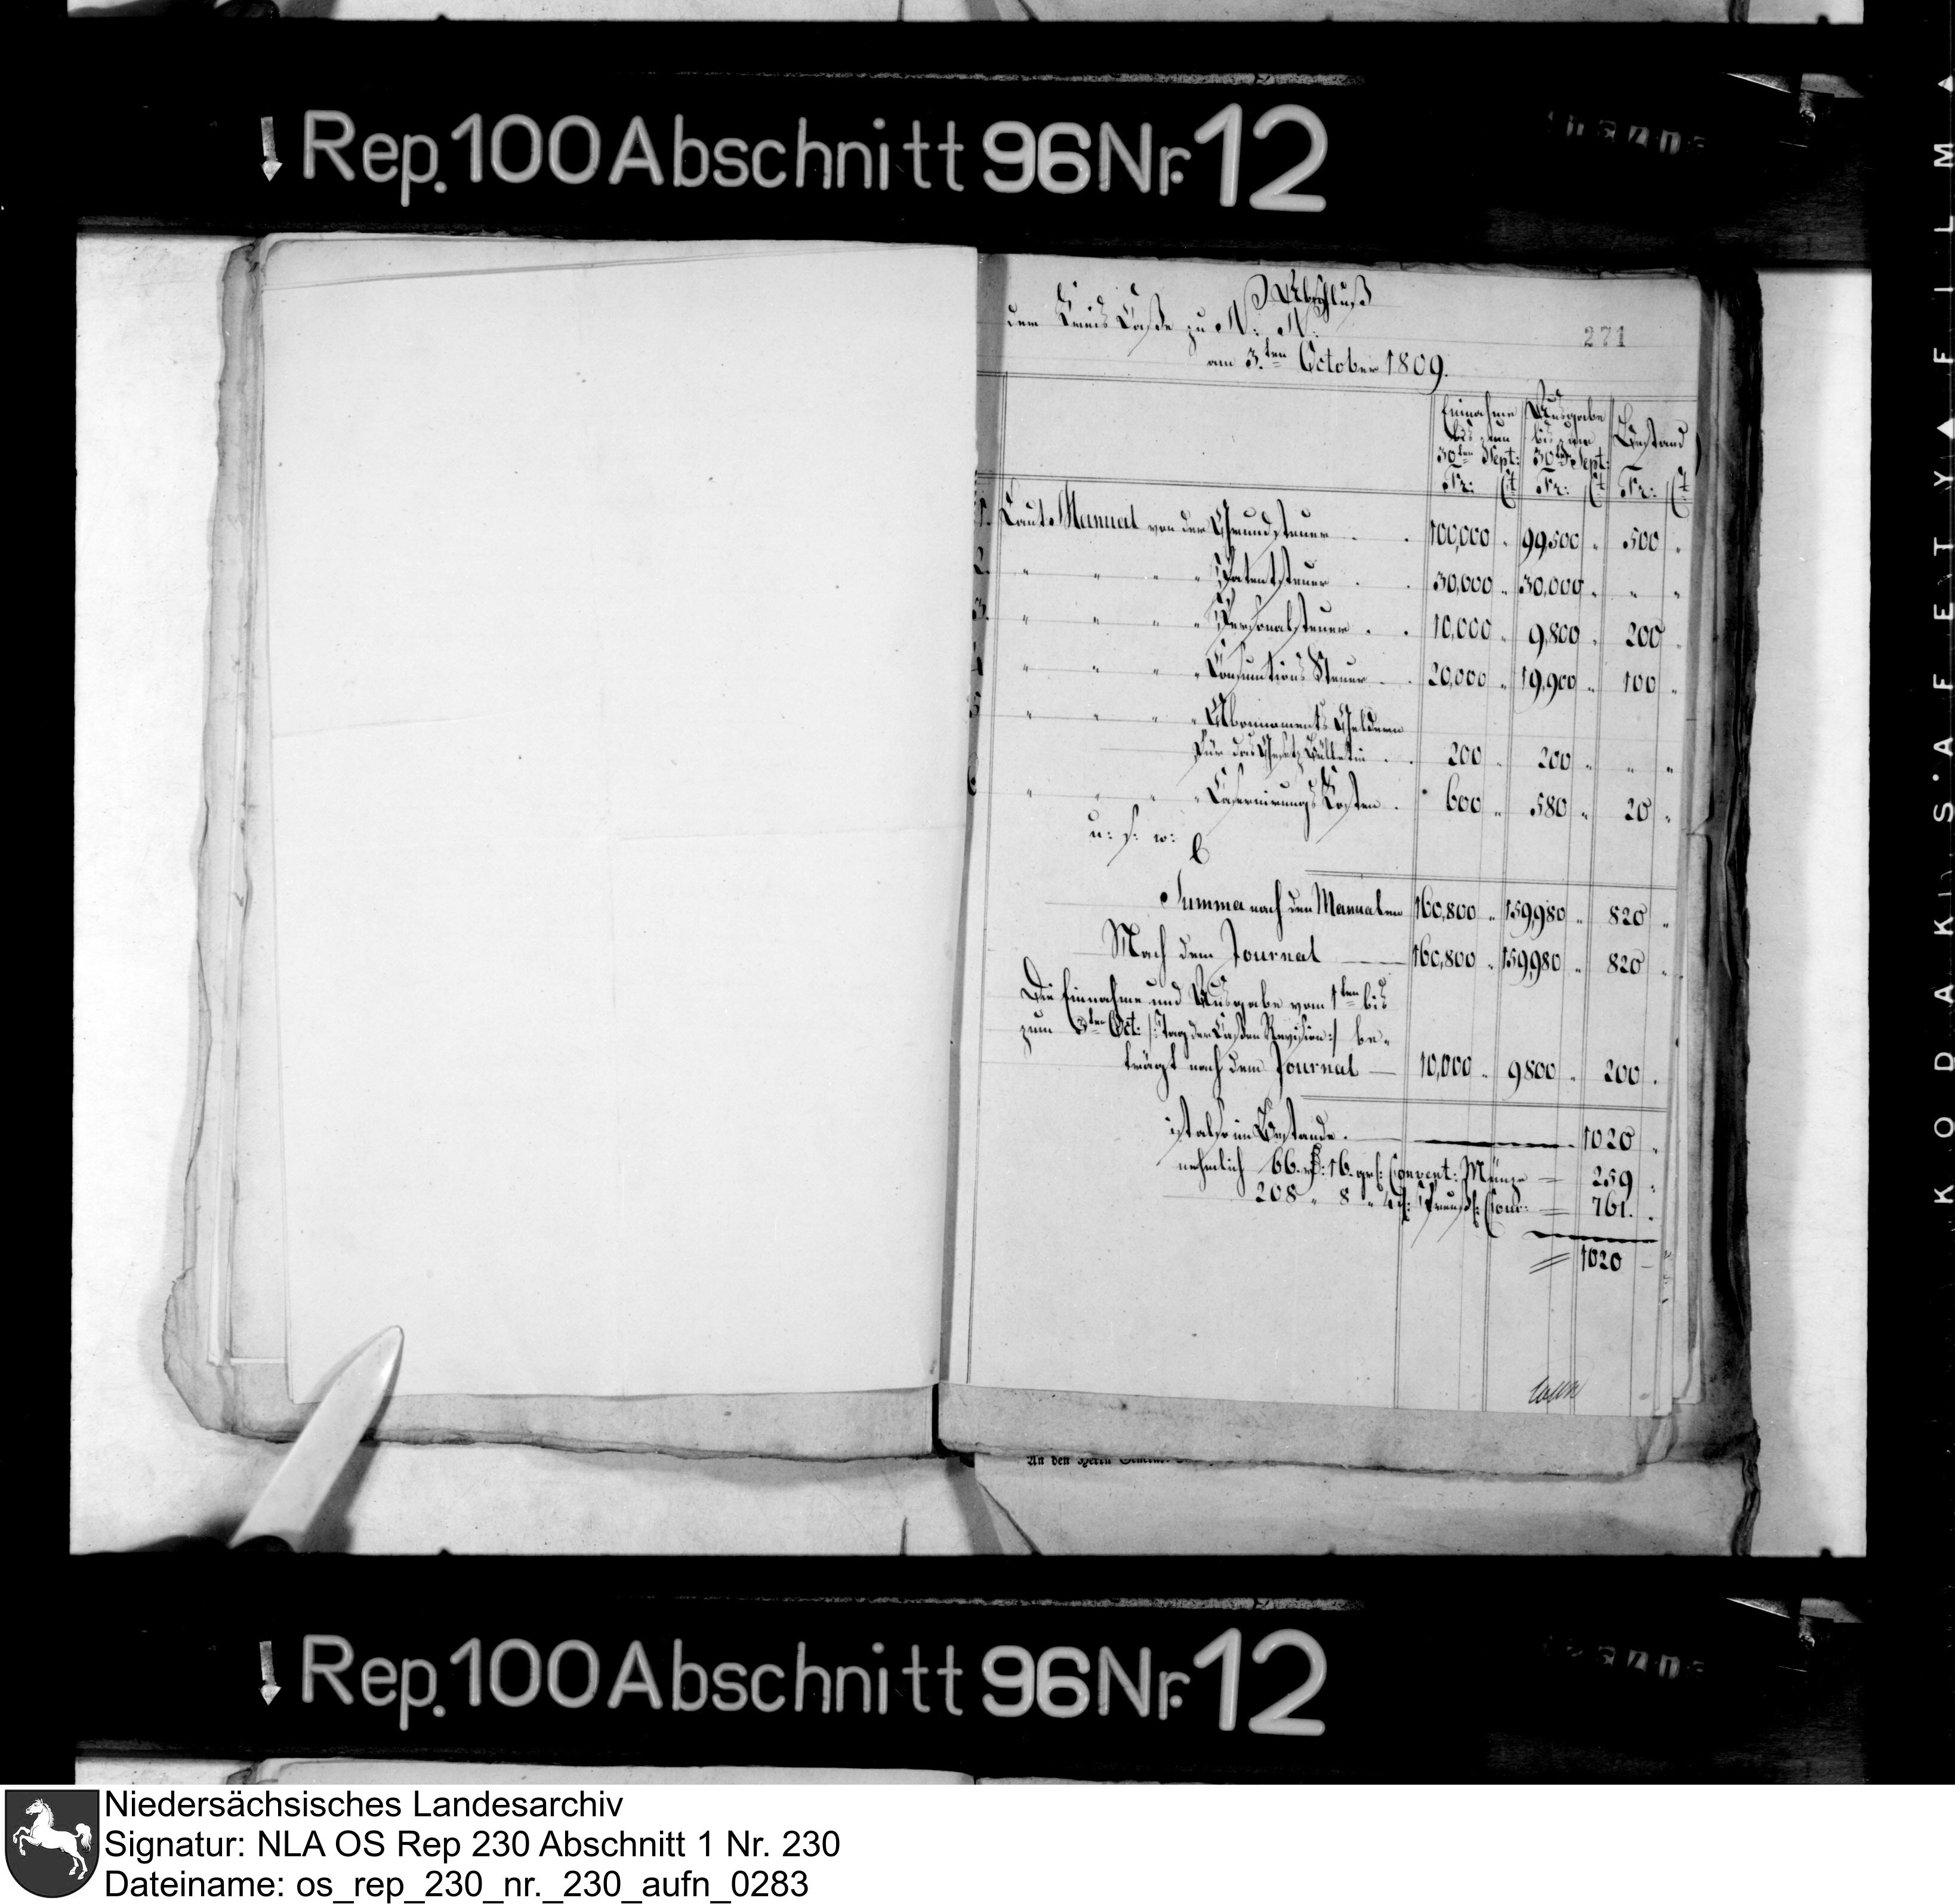 Rep. 100 Abschnitt 96 Nr. 12
Abschluß
der Kreis Casse zu N: N:
271
am 3.ten October 1809.
Einnahme bis zum 30ten Sept: Fr: Ct
Ausgabe bis zum 30ten Sept: Fr: Ct
Bestand Fr: Ct
1. Laut Manual von der Grundsteuer . . 100,000 " 99,500 " 500 "
2. " " " " Patentsteuer . . 30,000 " 30,000 " " "
3. " " " " Personalsteuer . . 10,000 " 9,800 " 200 "
4 " " " " Consumtions Steuer . . 20,000 " 19,900 " 100 "
5 " " " " Abonnements Geldern
für das Gesetz Bülletin . . 200 " 200 " " "
6 " " " " Casernirungs Kosten . 600 " 580 " 20 "
u: s: w:
Summa nach den Manualen 160,800 " 159,980 " 820 "
Nach dem Journal — 160,800 " 159,980 " 820 "
Die Einnahme und Ausgabe vom 1ten bis
zum 3ten Oct: /: Tag der Cassen Revision :/ be-
trägt nach dem Journal — 10,000 " 9800 " 200 "
ist also im Bestande . — 1020 "
nehmlich 66. rß: 16. gr: Convent: Münze = 259 "
208 " 8 " 4 d: Preuß: Cour: = 761. "
= 1020 —
An den Herrn
Rep. 100 Abschnitt 96 Nr. 12
KODAK S'AFETY FILM
Niedersächsisches Landesarchiv
Signatur: NLA OS Rep 230 Abschnitt 1 Nr. 230
Dateiname: os_rep_230_nr._230_aufn_0283